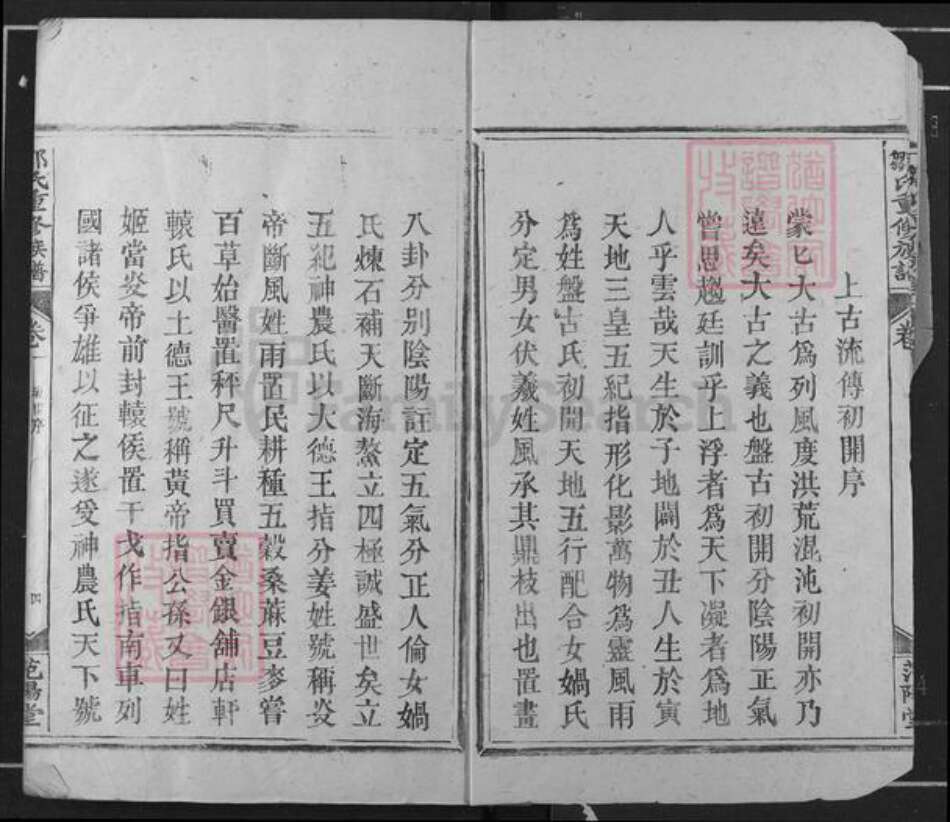 鄒氏重修族譜
卷
范陽堂
上古流傳初開序
蒙匕大古爲列風度洪荒混沌初開亦乃
遠矣大古之義也盤古初開分陰陽正氣
嘗思趨廷訓乎上浮者爲天下凝者爲地
人乎雲哉天生於子地闢於丑人生於寅
天地三皇五紀指形化影萬物爲靈風雨
爲姓盤古氏初開天地五行配合女媧氏
分定男女伏羲姓風承其鼎枝出也置畫
八卦分別陰陽註定五氣分正人倫女媧
氏煉石補天斷海鰲立四極誠盛世矣立
五祀神農氏以火德王指分姜姓號稱炎
帝斷風姓雨置民耕種五穀桑蔴豆麥嘗
百草始醫置秤尺升斗買賣金銀舖店軒
轅氏以土德王號稱黃帝指公孫又曰姓
姬當炎帝前封轅侯置干戈作指南車列
國諸侯爭雄以征之遂受神農氏天下號
鄒氏重修族譜
卷一
四
范陽堂
FamilySearch